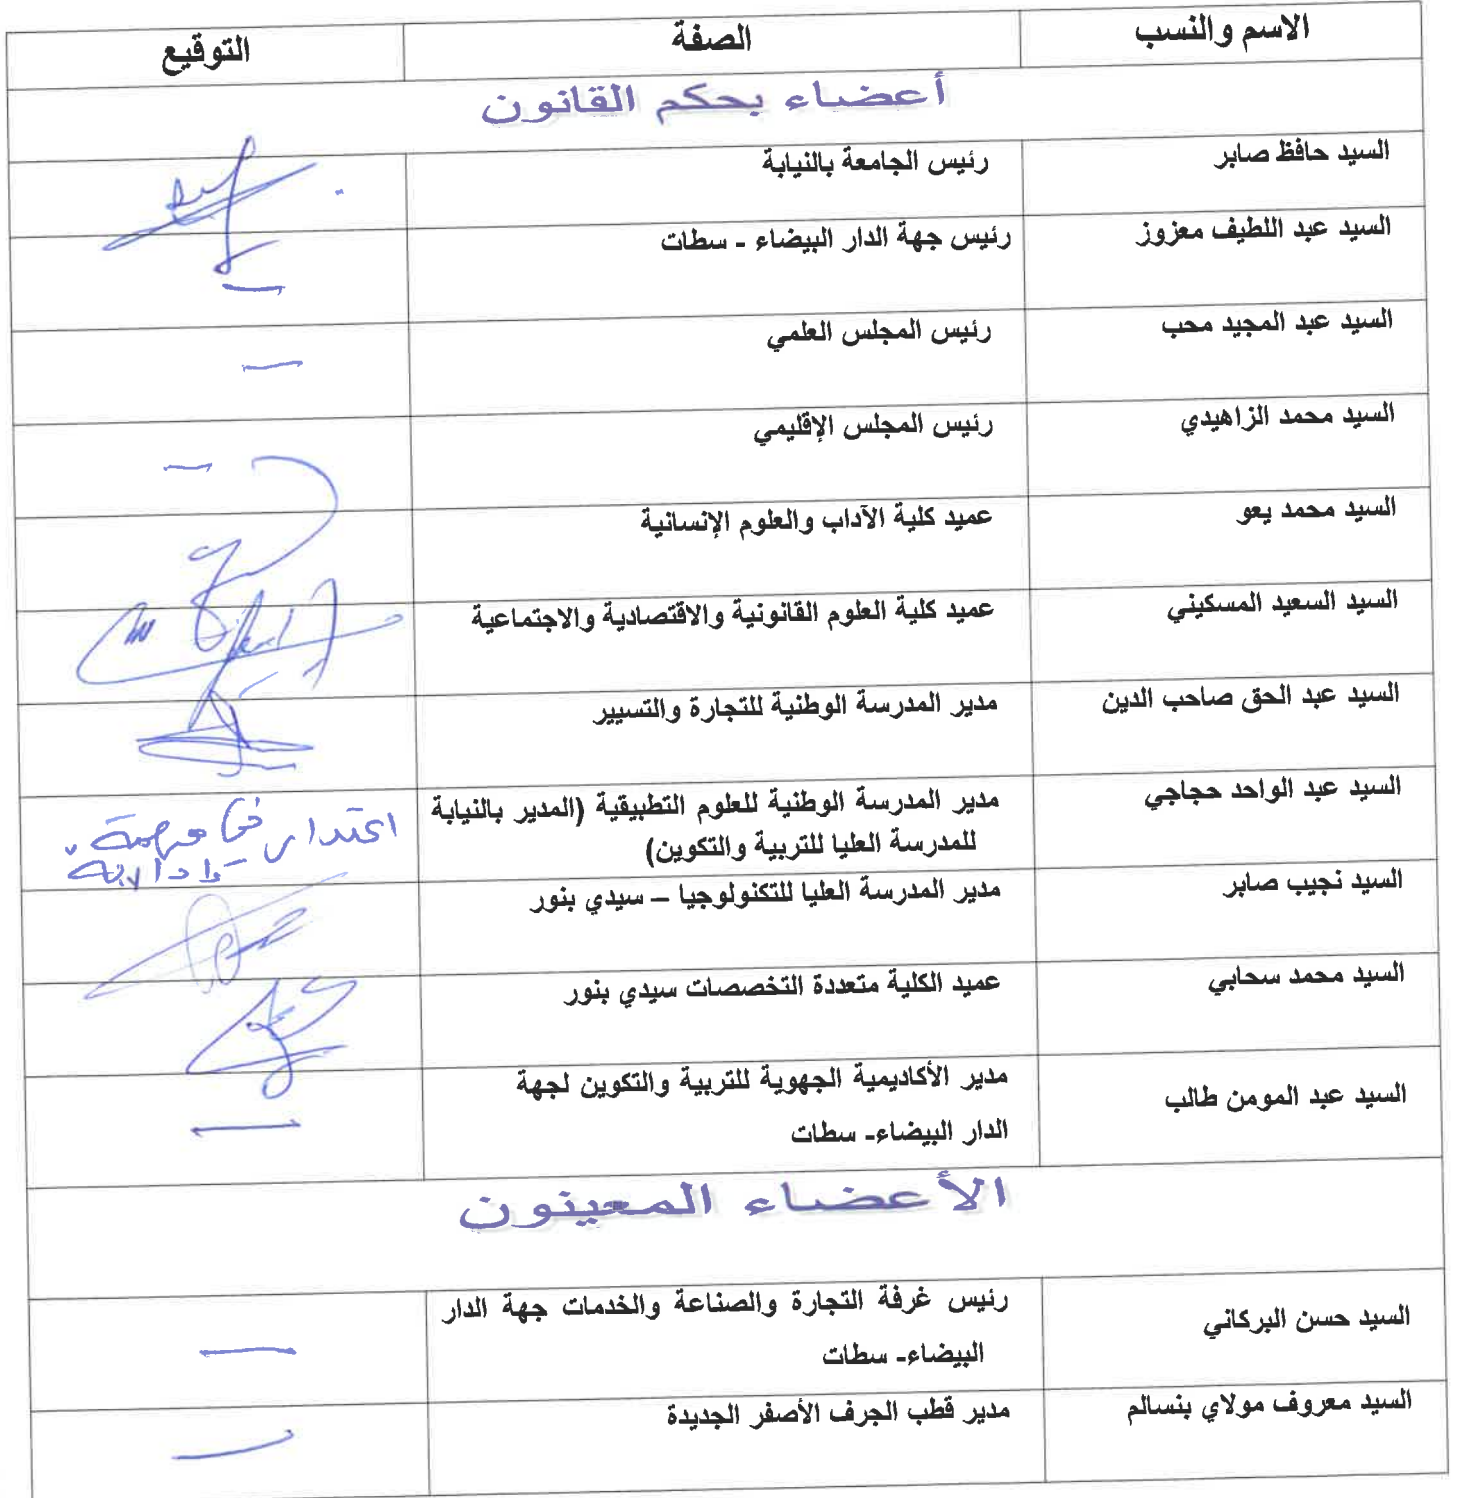 الاسم والنسب الصفة التوقيع
أعضاء بحكم القانون
السيد حافظ صابر رئيس الجامعة بالنيابة
السيد عبد اللطيف معزوز رئيس جهة الدار البيضاء - سطات
السيد عبد المجيد محب رئيس المجلس العلمي
السيد محمد الزاهيدي رئيس المجلس الإقليمي
السيد محمد يعو عميد كلية الآداب والعلوم الإنسانية
السيد السعيد المسكيني عميد كلية العلوم القانونية والاقتصادية والاجتماعية
السيد عبد الحق صاحب الدين مدير المدرسة الوطنية للتجارة والتسيير
السيد عبد الواحد حجاجي مدير المدرسة الوطنية للعلوم التطبيقية (المدير بالنيابة
للمدرسة العليا للتربية والتكوين)
اعتدار في مهمة
السيد نجيب صابر مدير المدرسة العليا للتكنولوجيا – سيدي بنور
السيد محمد سحابي عميد الكلية متعددة التخصصات سيدي بنور
السيد عبد المومن طالب مدير الأكاديمية الجهوية للتربية والتكوين لجهة
الدار البيضاء- سطات
الأعضاء المعينون
السيد حسن البركاني رئيس غرفة التجارة والصناعة والخدمات جهة الدار
البيضاء- سطات
السيد معروف مولاي بنسالم مدير قطب الجرف الأصفر الجديدة